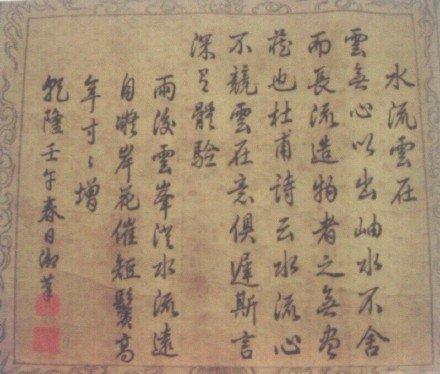 水流雲在
雲無心以出岫水不舍
而長流造物者之無盡
藏也杜甫詩云水流心
不競雲在意俱遲斯言
深 體驗
雨後雲峯澄水流遠
自凝岸花催短鬢高
年寸〻增
乾隆壬午春日御筆